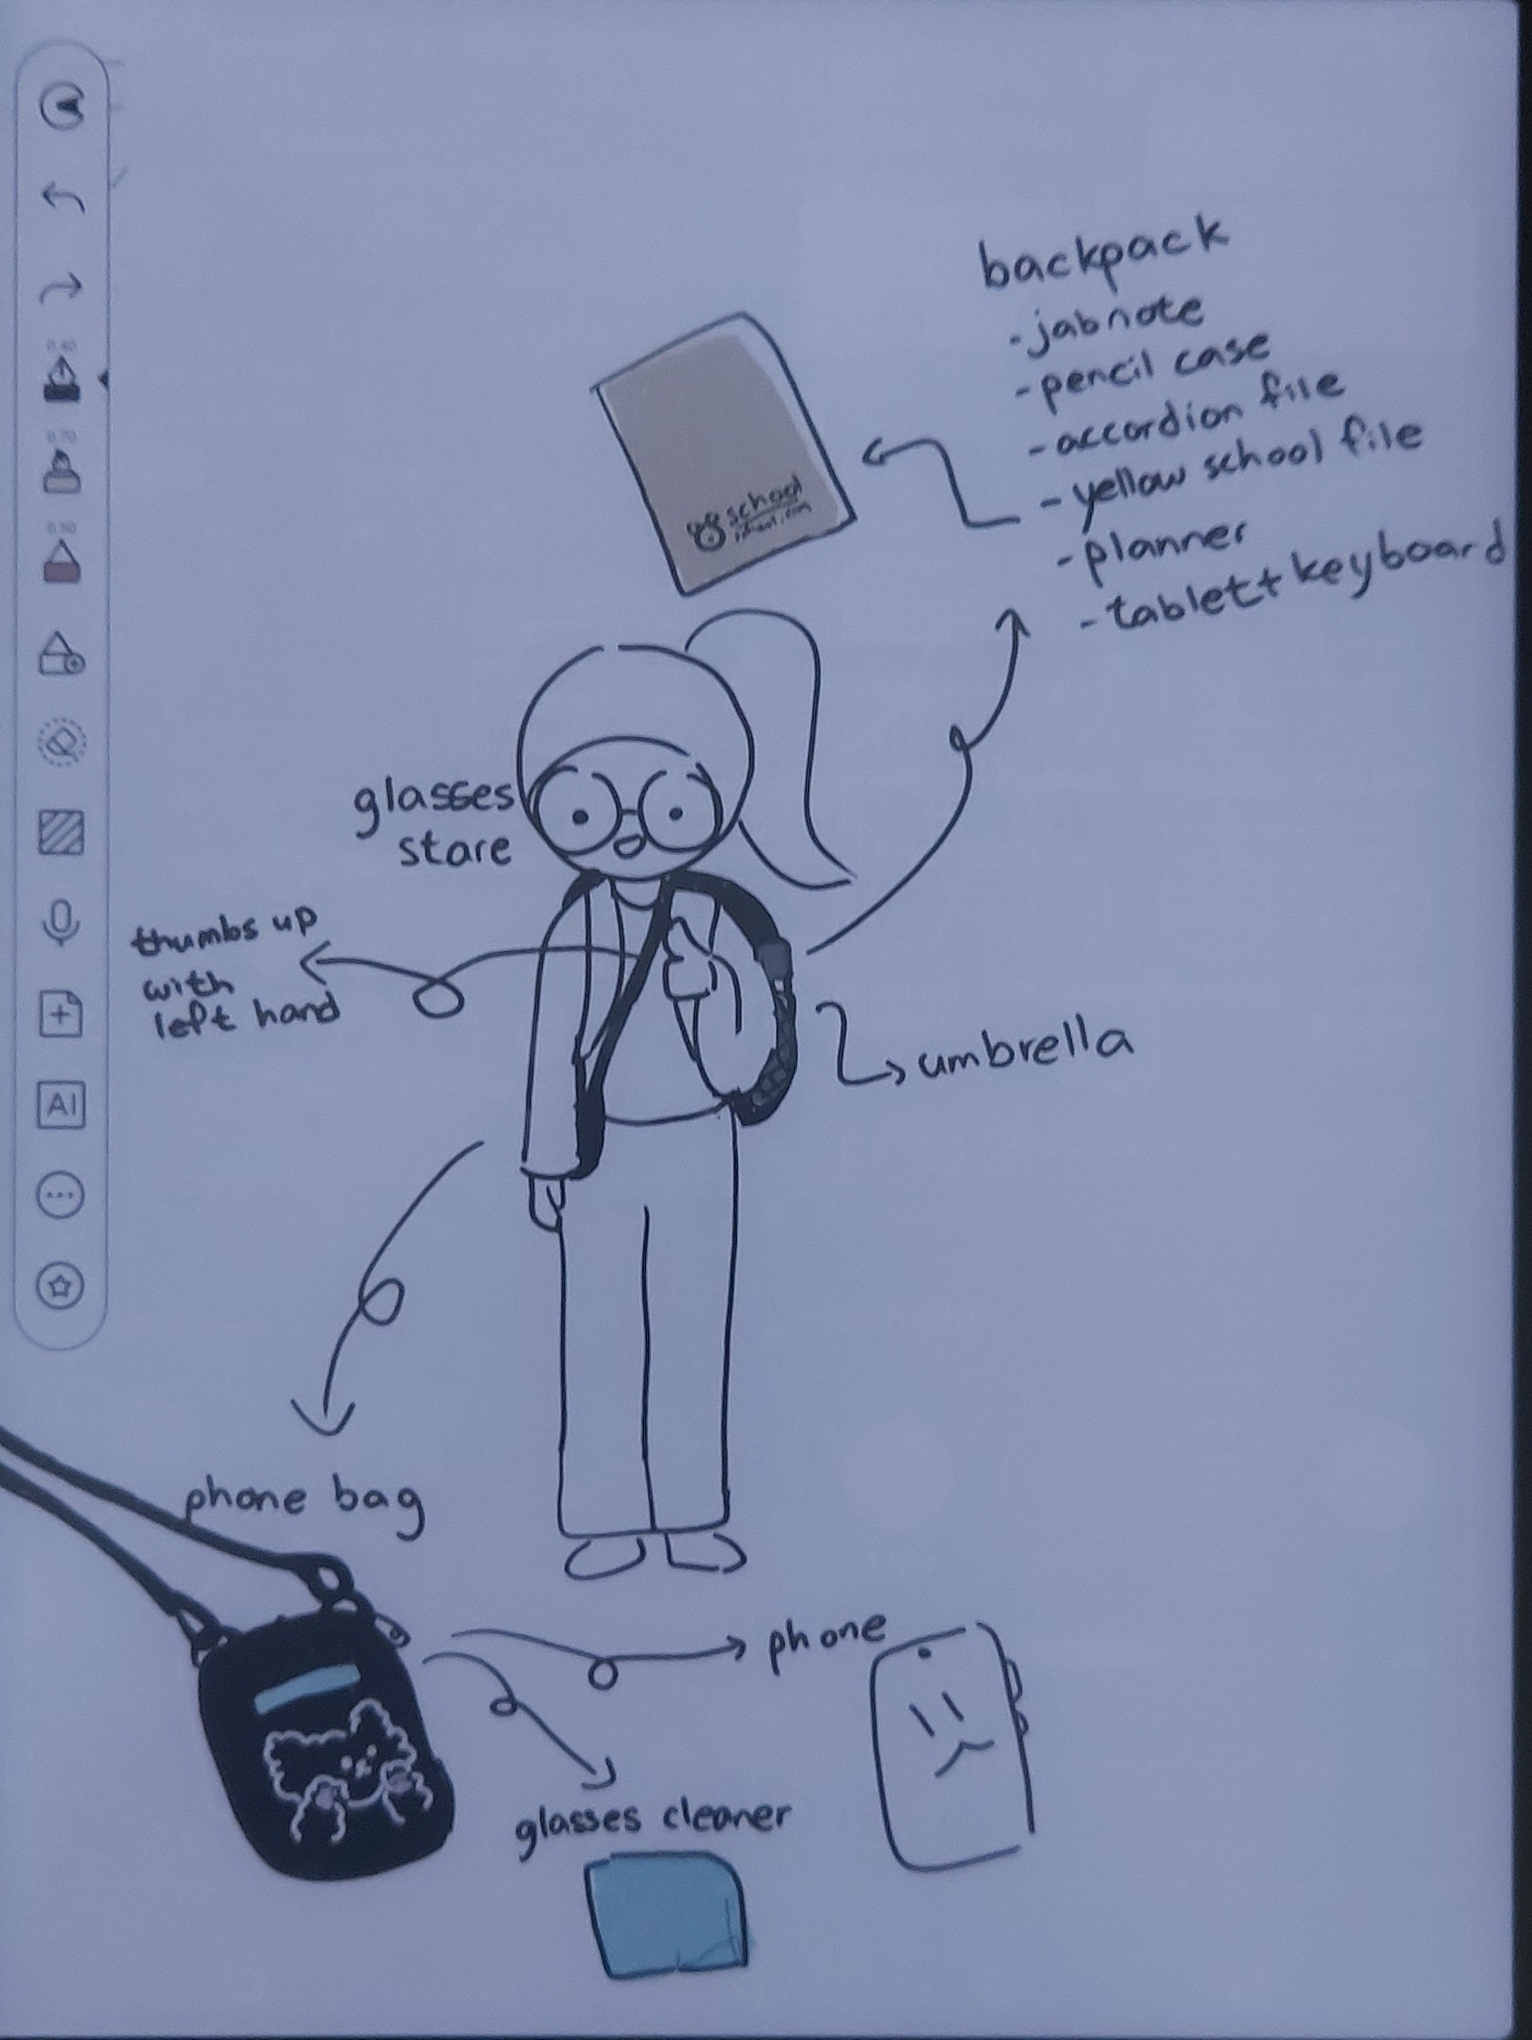 backpack
- jabnote
- pencil case
- accordion file
- yellow school file
- planner
- tablet + keyboard
school
glasses
stare
thumbs up
with
left hand
umbrella
phone bag
phone
glasses cleaner
AI